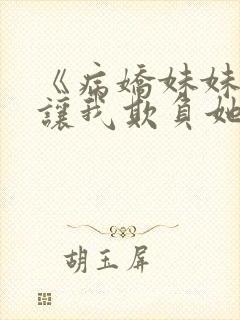 《病嬌妹妹
讓我欺負她
胡玉屏